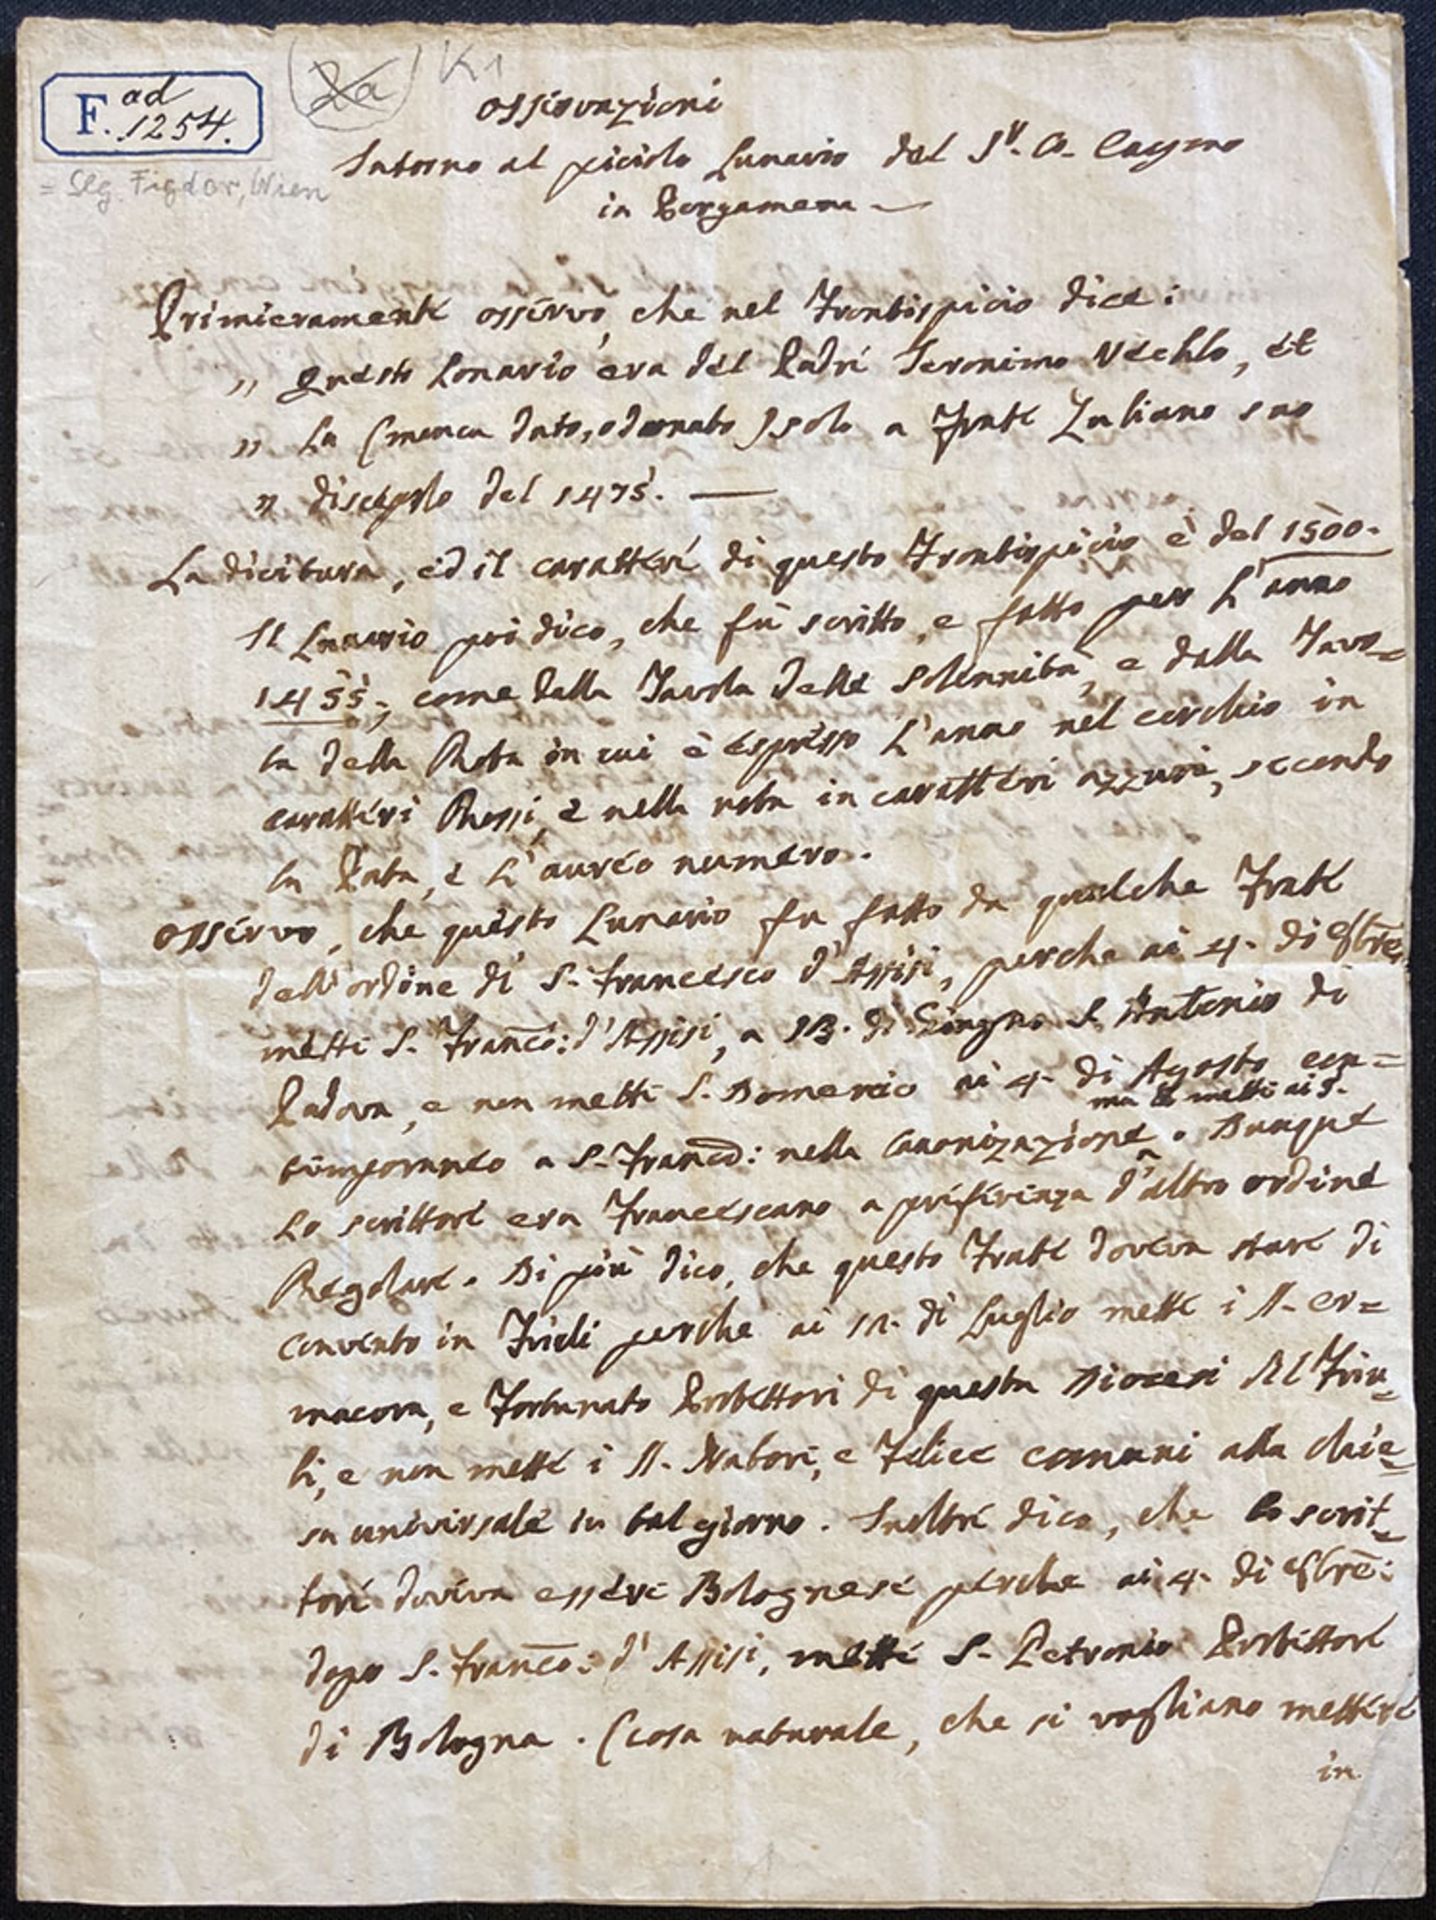 F. ad
1254.
2a
K1
= Slg. Figdor, Wien
osservazioni
Intorno al piciolo Lunario del Sr. Co. Caymo
in Pergamena —
Primieramente osservo, che nel Frontispicio dice:
„ Questo Lonario era del Padre Jeronimo Vechlo, et
„ La (manca dato, o donato) solo a Frate Zuliano suo
„ discepolo del 1475. —
La dicitura, ed il carattere di questo Frontispicio è del 1500.
Il Lunario poi dico, che fù scritto, e fatto per L'anno
1455; come dalla Tavola delle Solennità, e dalla Tavo=
la della Rota in cui è espresso L'anno nel cerchio in
caratteri Rossi, e nella rota in caratteri azzuri, secondo
la Pata, e L'aureo numero.
osservo, che questo Lunario fu fatto da qualche Frate
dell'ordine di S. Francesco d'Assisi, perche ai 4. di 8bre,
mette S. Franco: d'Assisi, a 13. di Giugno S. Antonio di
Padova, e non mette S. Domenico ai 4. di Agosto con=
ma lo mette ai 5.
temporaneo a S. Franco: nella Canonizazione. Dunque
Lo scrittore era Francescano a preferenza d'altro ordine
Regolare. Di più dico, che questo Frate doveva stare di
convento in Friuli perche ai 12. di Luglio mette i SS. Er=
macora, e Fortunato Protettori di questa Diocesi del Friu=
li, e non mette i SS. Nabore, e Felice comuni alla chie=
sa universale in tal giorno. Inoltre dico, che lo scrit=
tore doveva essere Bolognese perche ai 4. di 8bre:
dopo S. Franco: d'Assisi, mette S. Petronio Protettore
di Bologna. (cosa naturale, che si vogliano mettere
in